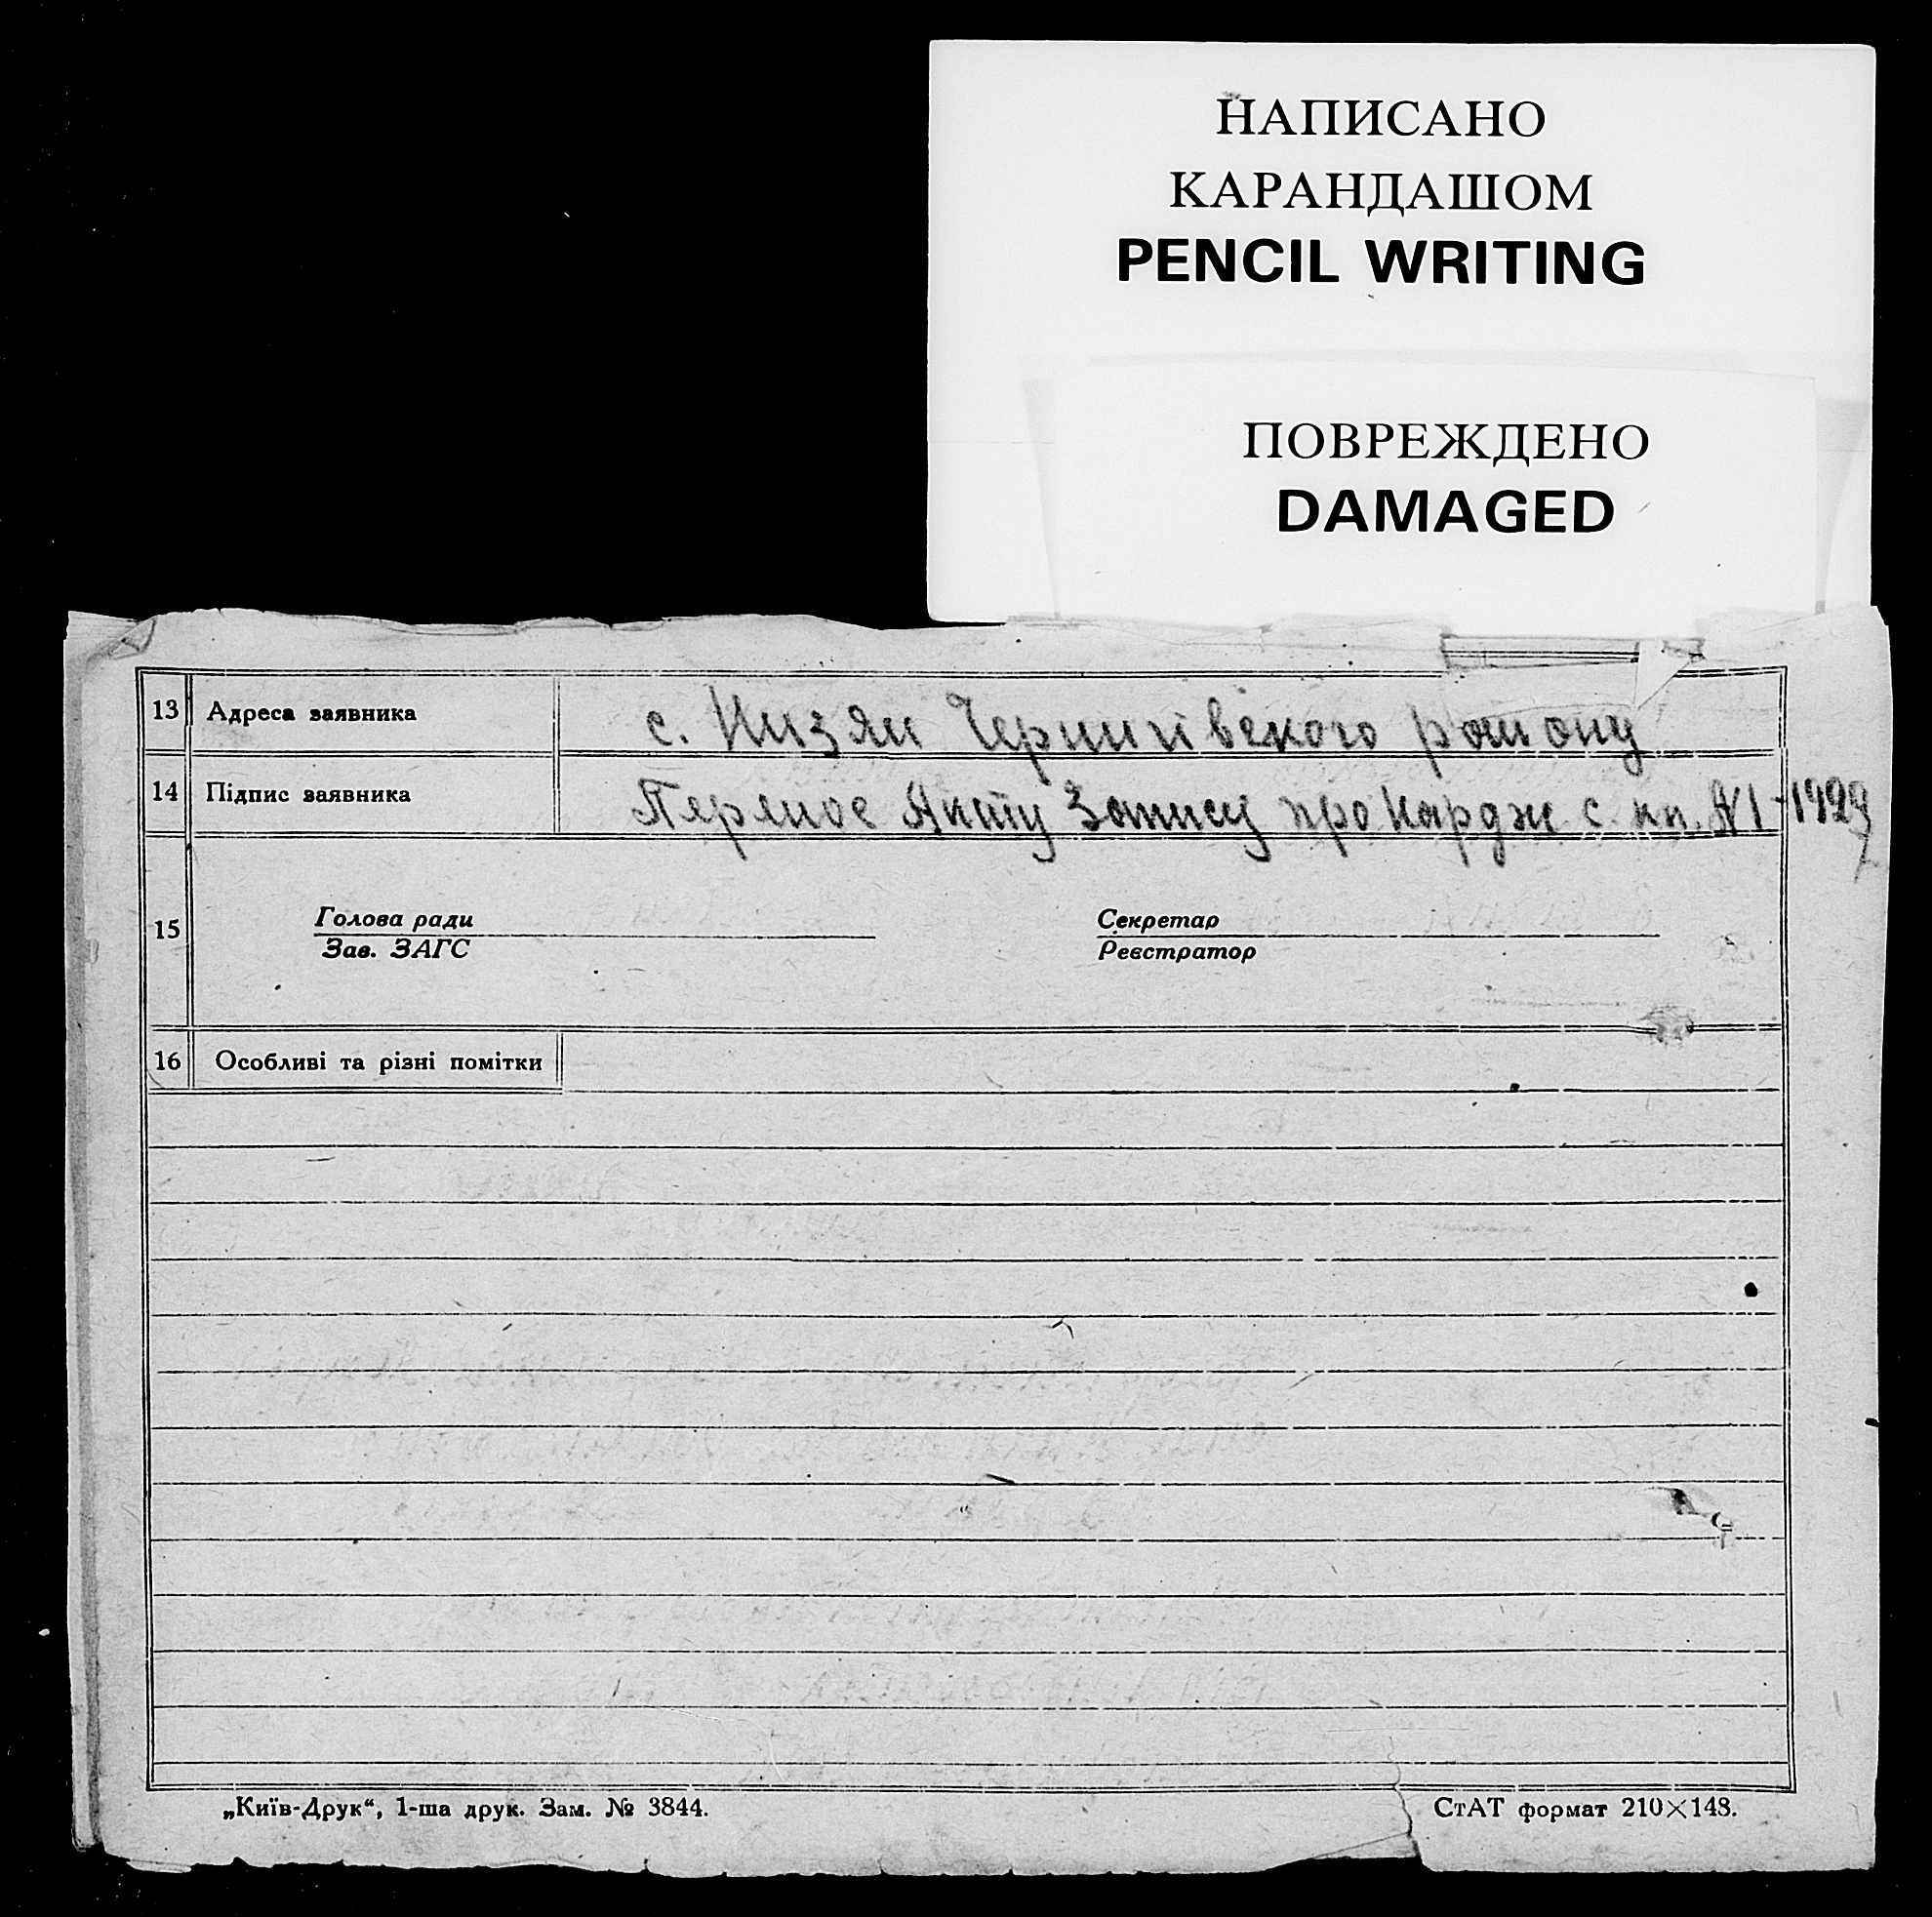 НАПИСАНО
КАРАНДАШОМ
PENCIL WRITING
ПОВРЕЖДЕНО
DAMAGED
13 Адреса заявника с. Низяни Чернигівского району
14 Підпис заявника Акту Запису про с. №1-1929
15 Голова ради Секретар
Зав. ЗАГС Реєстратор
16 Особливі та різні помітки
„Київ-Друк“, 1-ша друк. Зам. № 3844. СтАТ формат 210×148.